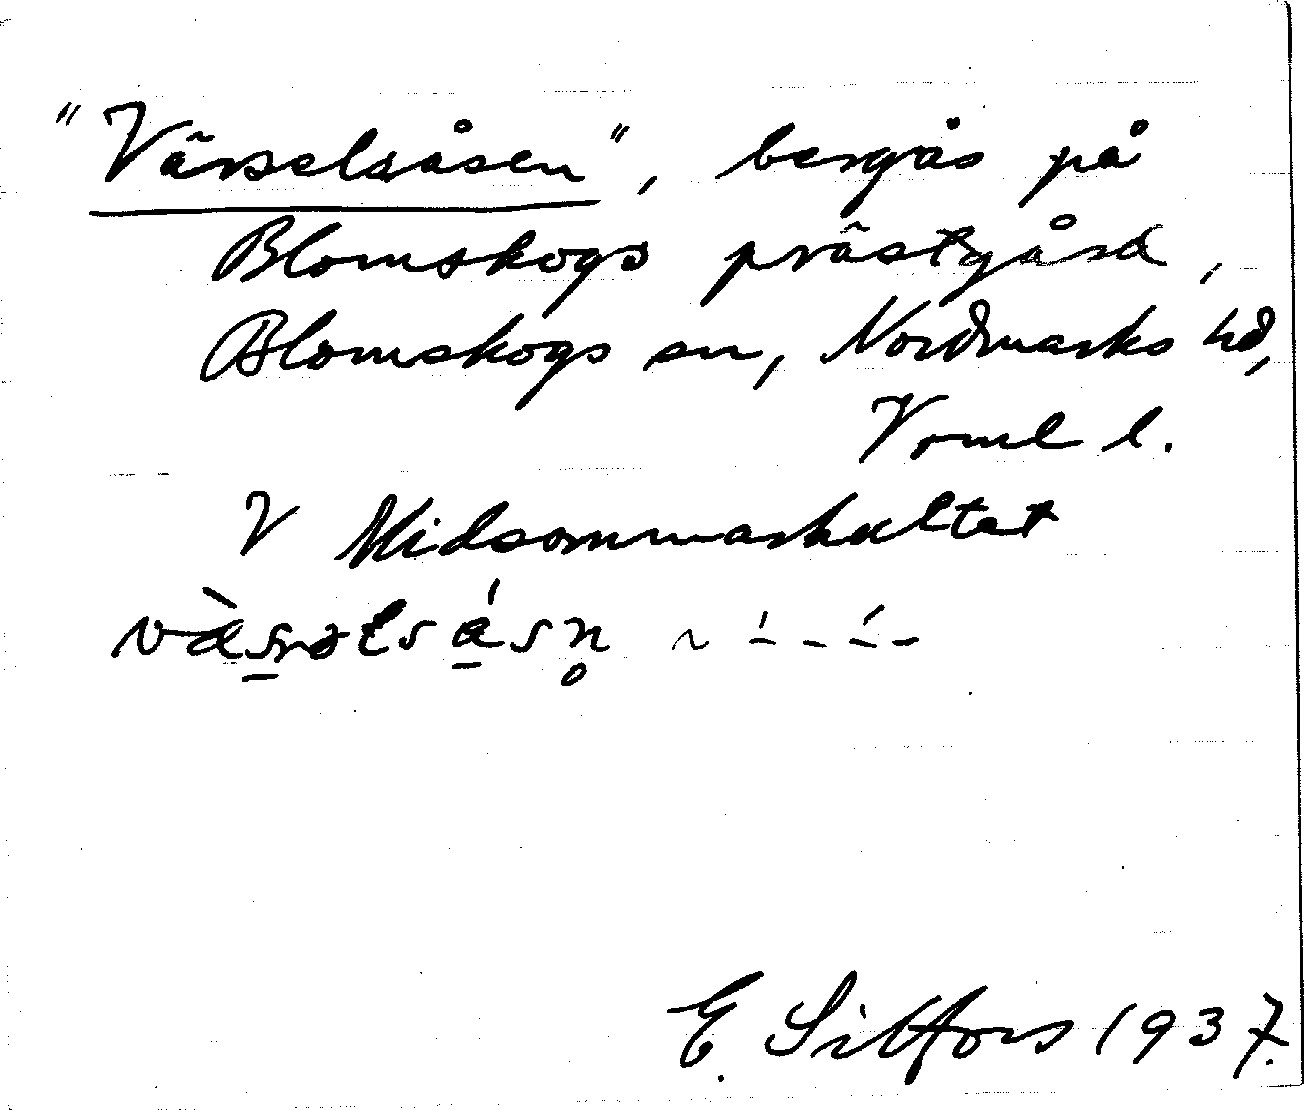 "Värselsåsen", bergås på
Blomskogs prästgård,
Blomskogs sn, Nordmarks hd,
Vrml l.
V Midsommarkultet
E. Sitfors 1937.